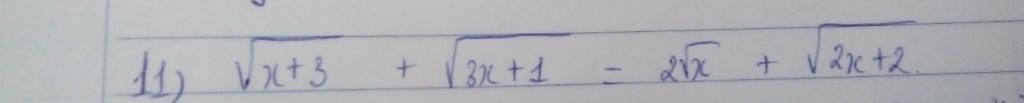 11) √(x+3) + √(3x+1) = 2√x + √(2x+2)